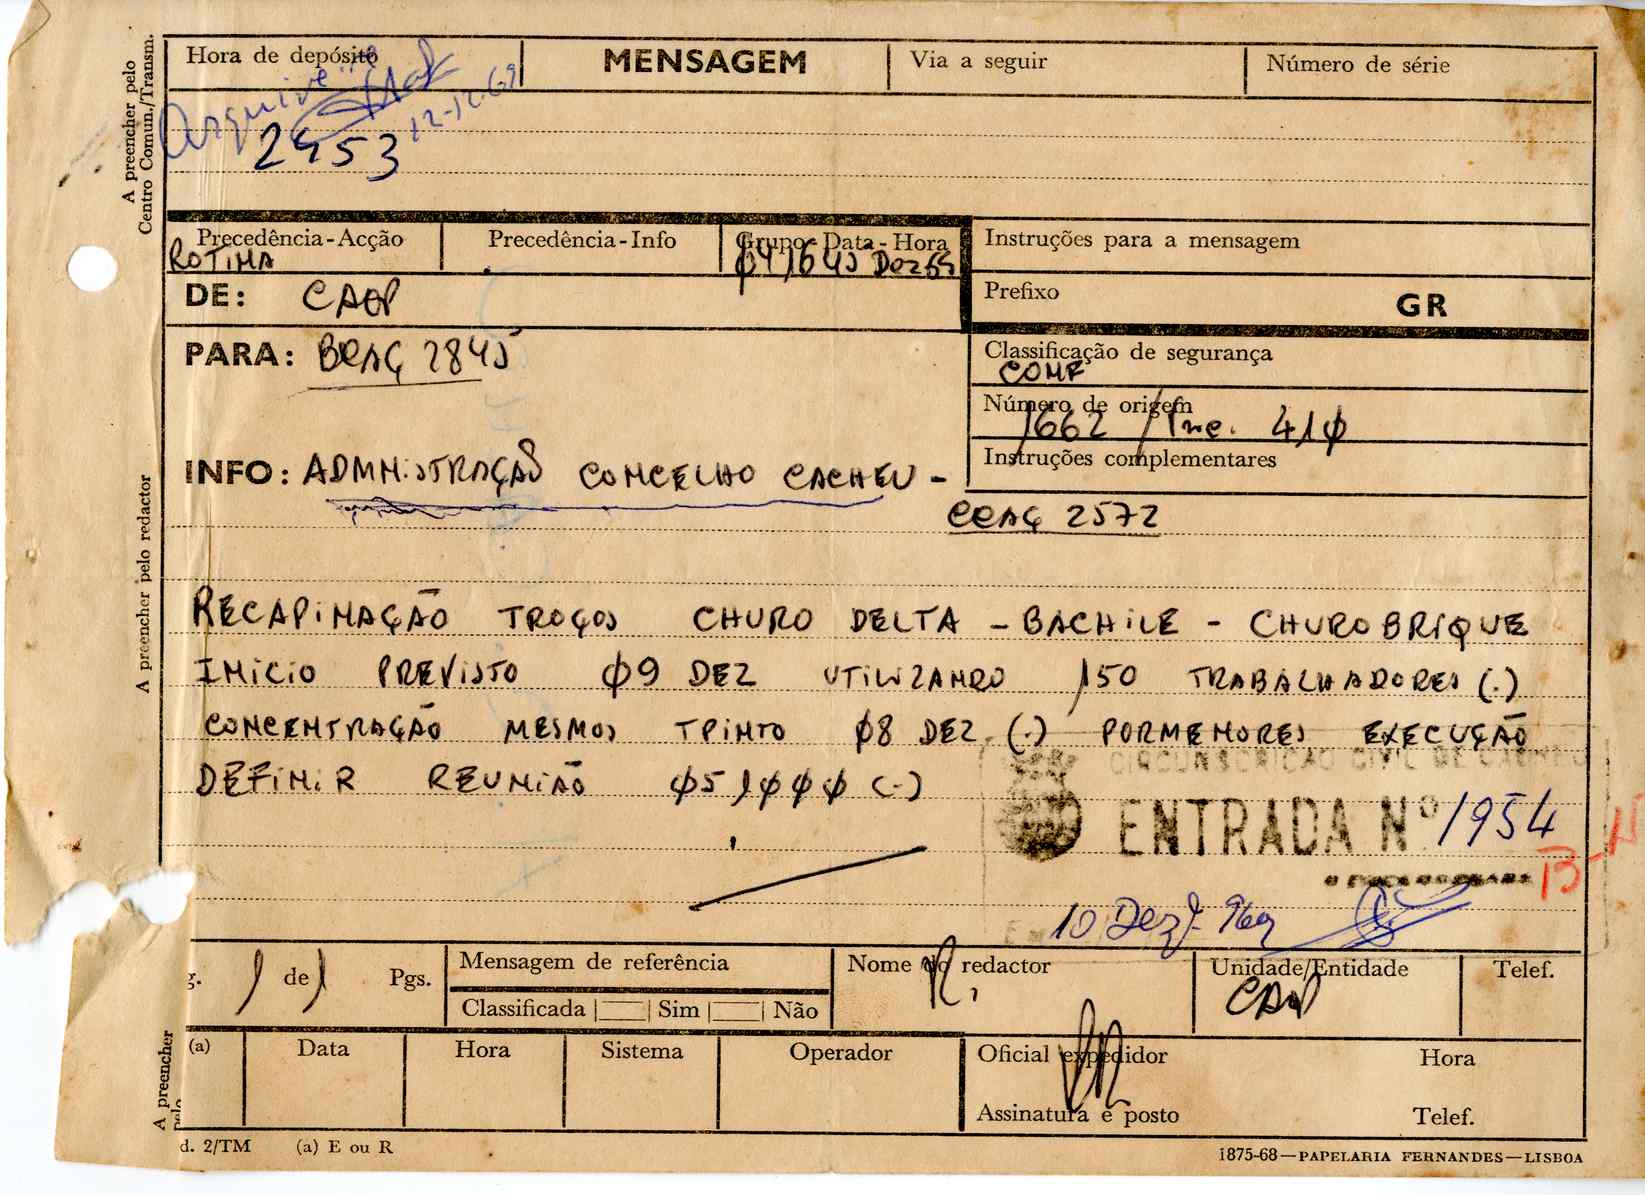 Hora de depósito
MENSAGEM
Via a seguir
Número de série
Arquive-se
12-12-69
2453
A preencher pelo
Centro Comun./Transm.
Precedência-Acção
ROTINA
Precedência-Info
Grupo-Data-Hora
041645 Dez 69
Instruções para a mensagem
DE: CAOP
Prefixo
GR
PARA: BCAÇ 2845
Classificação de segurança
CONF
Número de origem
1662 / 410
Instruções complementares
INFO: ADMNISTRAÇÃO CONCELHO CACHEU -
CCAÇ 2572
A preencher pelo redactor
RECAPINAÇÃO TROÇOS CHURO DELTA - BACHILE - CHUROBRIQUE
INICIO PREVISTO 09 DEZ UTILIZANDO 150 TRABALHADORES (.)
CONCENTRAÇÃO MESMOS TPINTO 08 DEZ (.) PORMENORES EXECUÇÃO
DEFINIR REUNIÃO 051000 (.)
CIRCUNSCRIÇÃO CIVIL DE CACHEU
ENTRADA Nº 1954
B-4
10 Dez. 969
g. 1 de 1 Pgs.
Mensagem de referência
Classificada Sim Não
Nome do redactor
R.
Unidade/Entidade
CAOP
Telef.
A preencher
pelo
(a)
Data
Hora
Sistema
Operador
Oficial expedidor
Hora
Assinatura e posto
Telef.
d. 2/TM (a) E ou R
1875-68—PAPELARIA FERNANDES—LISBOA